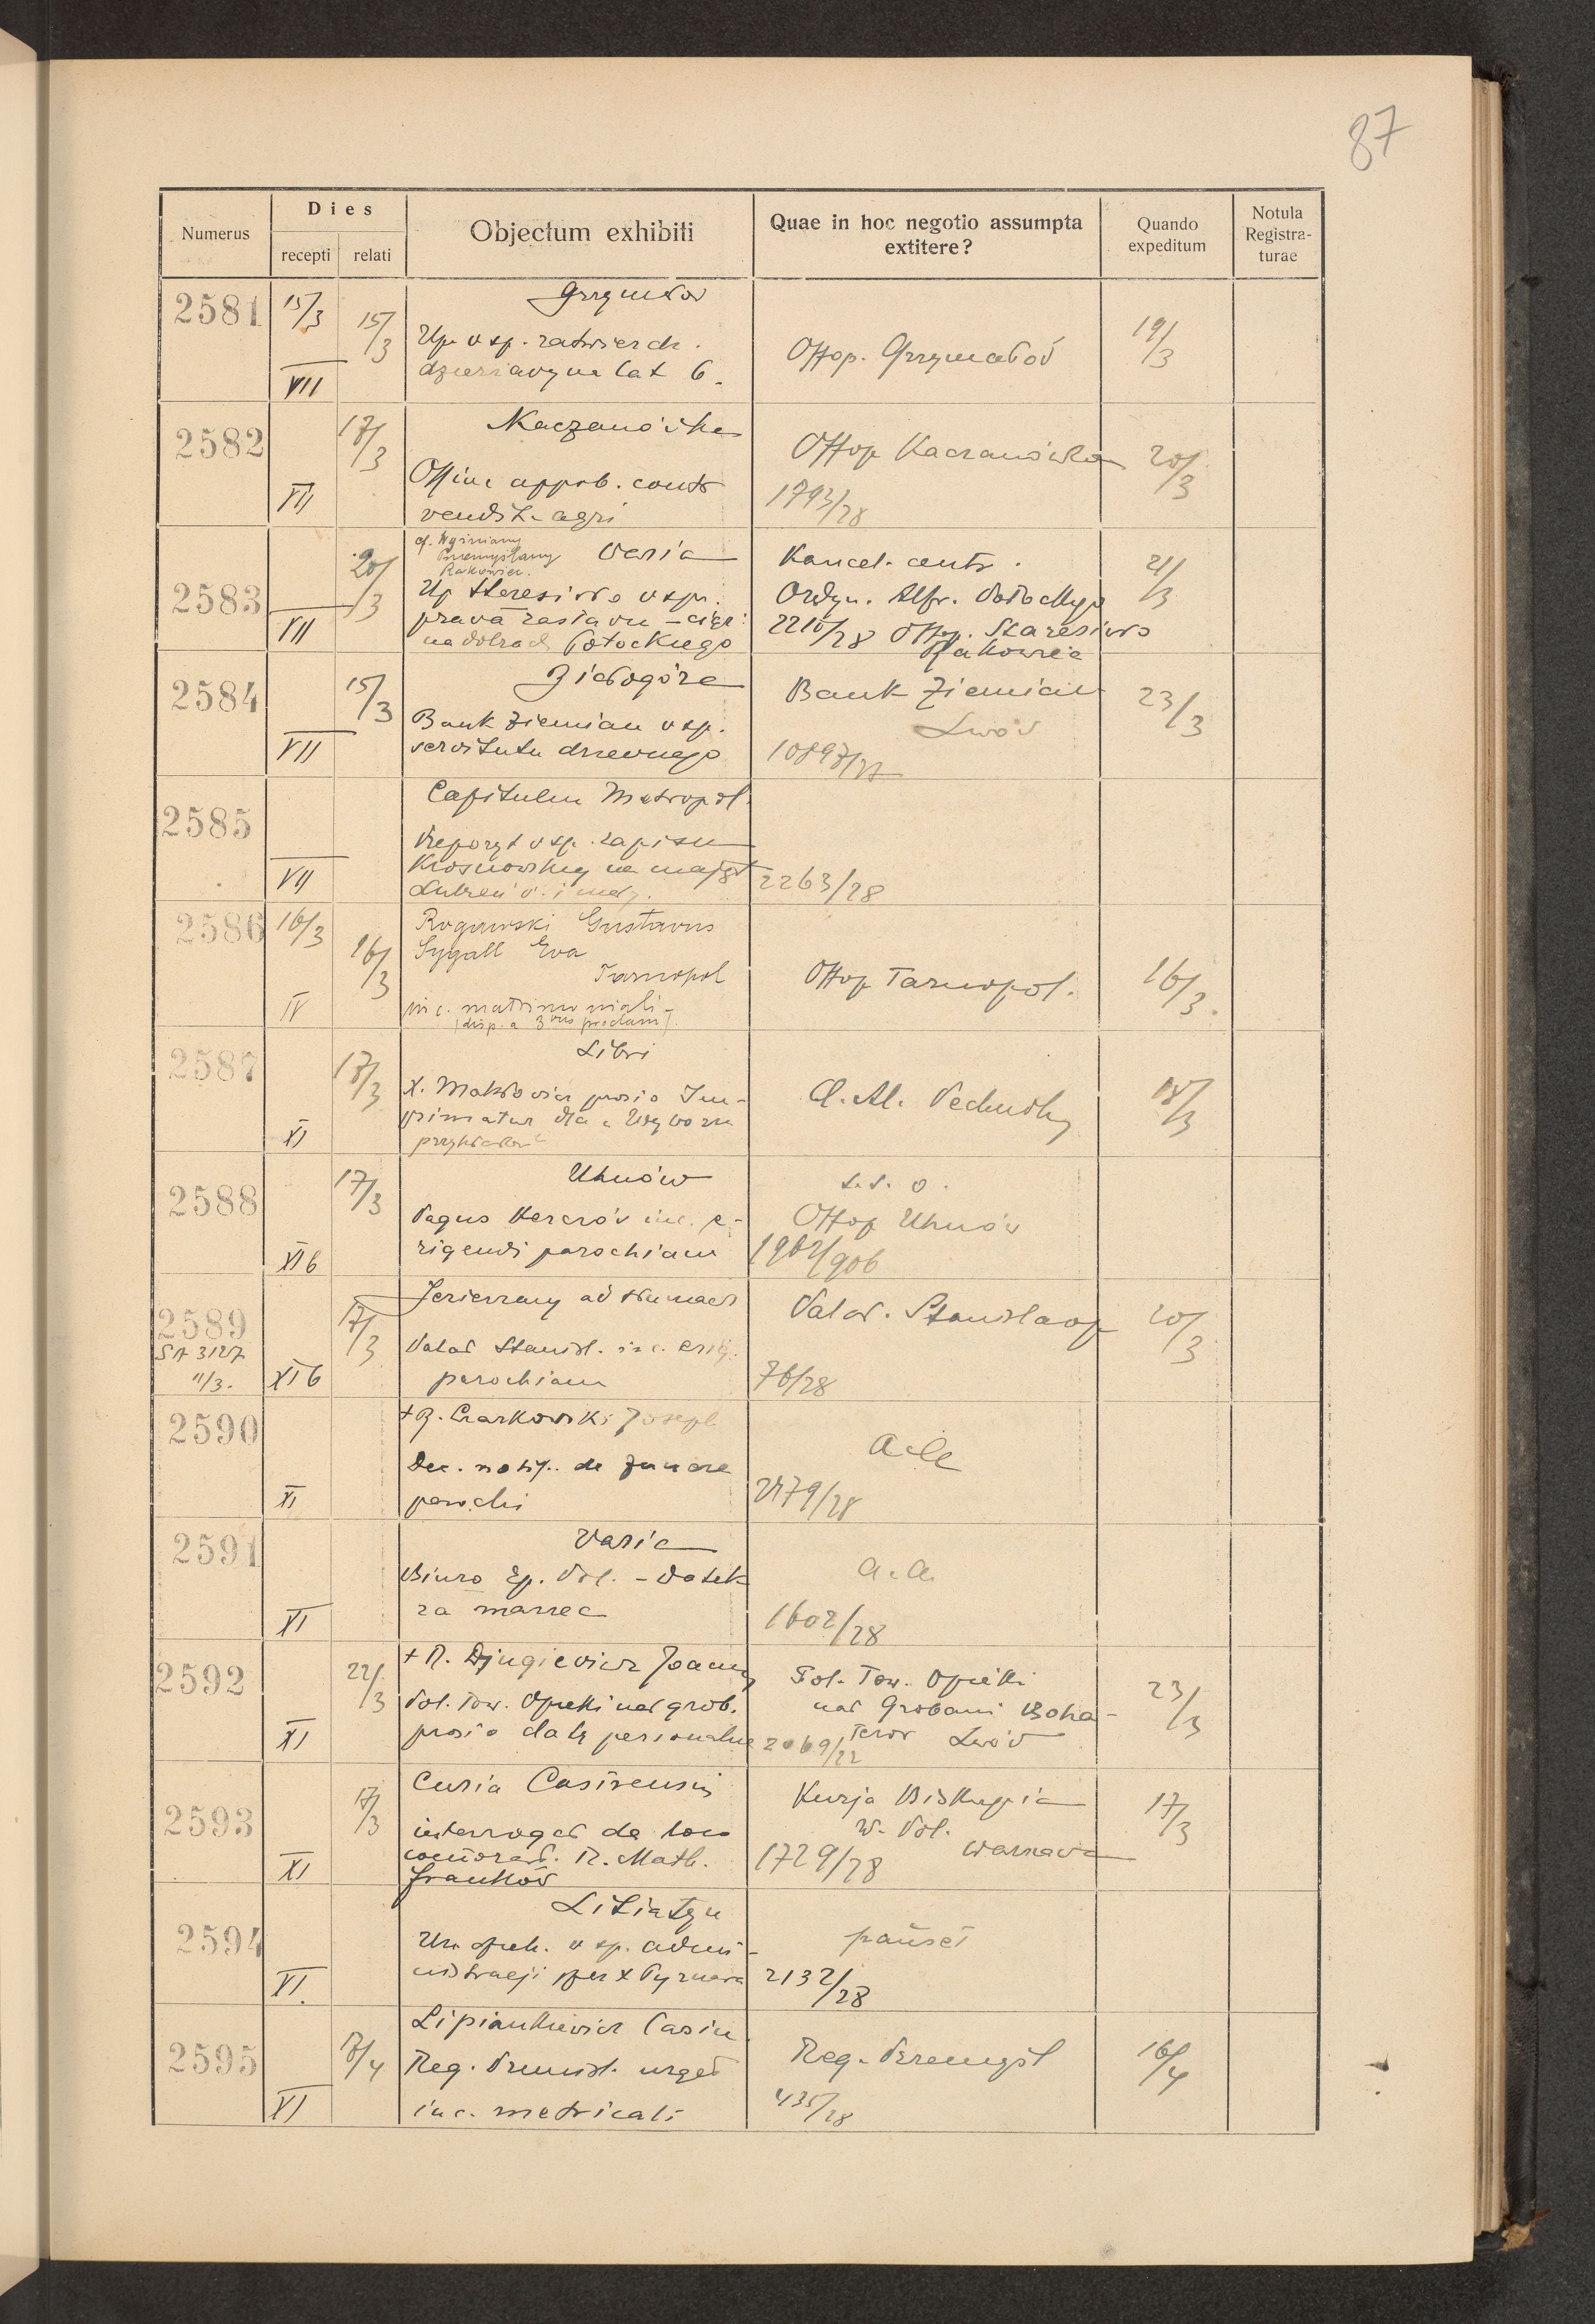 87
Numerus
Dies
recepti
relati
Objectum exhibiti
Quae in hoc negotio assumpta
extitere?
Quando
expeditum
Notula
Registra-
turae
2581
15/3
VII
15/3
Up. o sp. zatwierdz.
dzierżawy na lat 6.
Offop. Grzymałów
19/3
2582
VII
17/3
Kaczanówka
Offiu appob. contr
vendit. agri
Offop Kaczanówka
1793/28
20/3
2583
VII
20/3
cf. Wyżniany
Przemyślany
Rakowiec.
Varia
Up Staresioło o spr.
prawa zastawu - cięż:
na dobrach Potockiego
Kancel. centr.
Ordyn. Alfr. Potockiego
2210/28 Offop. Staresioło
Rakowiec
21/3
2584
VII
15/3
Białogóra
Bank Ziemian o sp.
servitutu drzewnego
Bank Ziemian
Lwów
10898/27
23/3
2585
VII
Capitulum Metropol.
o sp. zapisu
na majątk
2263/28
2586
16/3
IV
16/3
Rogawski Gustavus
Sygall Eva
Tarnopol
in c. matrimoniali -
(disp. a 3bus proclam).
Offop Tarnopol.
16/3.
2587
XI
17/3
Libri
X. prosi o Im-
primatur dla
przykładów
18/3
2588
XI b
17/3
Uhnów
Pagus Korczów inc. e-
rigendi parochiam
Offop Uhnów
1962/906
2589
SA 3127
11/3.
XI b
17/3
Jezierzany ad Tłumacz
Palat Stanisl. inc. erig.
parochiam
Palat. Stanislaop
76/28
20/3
2590
XI
+ R. Czarkowski Joseph
Dec. notif. de funere
parochi
a-a
2179/28
2591
XI
Varia
Biuro Ep. Pol. - Datek
za marzec
a.a.
1602/28
2592
XI
22/3
+ R. Joannes
Pol. Tow. Opieki nad grob.
prosi o datę personalne
Pol. Tow. Opieki
nad Grobami Boha-
terów Lwów
2069/22
23/3
2593
XI
17/3
Curia Castrensis
interrogat de loco
comorat. R. Math.
Franków
Kurja Biskupia
W. Pol.
Warszawa
1729/28
17/3
2594
XI.
Litiatyn
Urz. o sp. admi-
nistracji per X
2132/28
2595
XI
13/4
Lipiankiewicz Casim
Reg. Premisl. urget
in c. metricali
Reg. Przemyśl
435/28
16/4